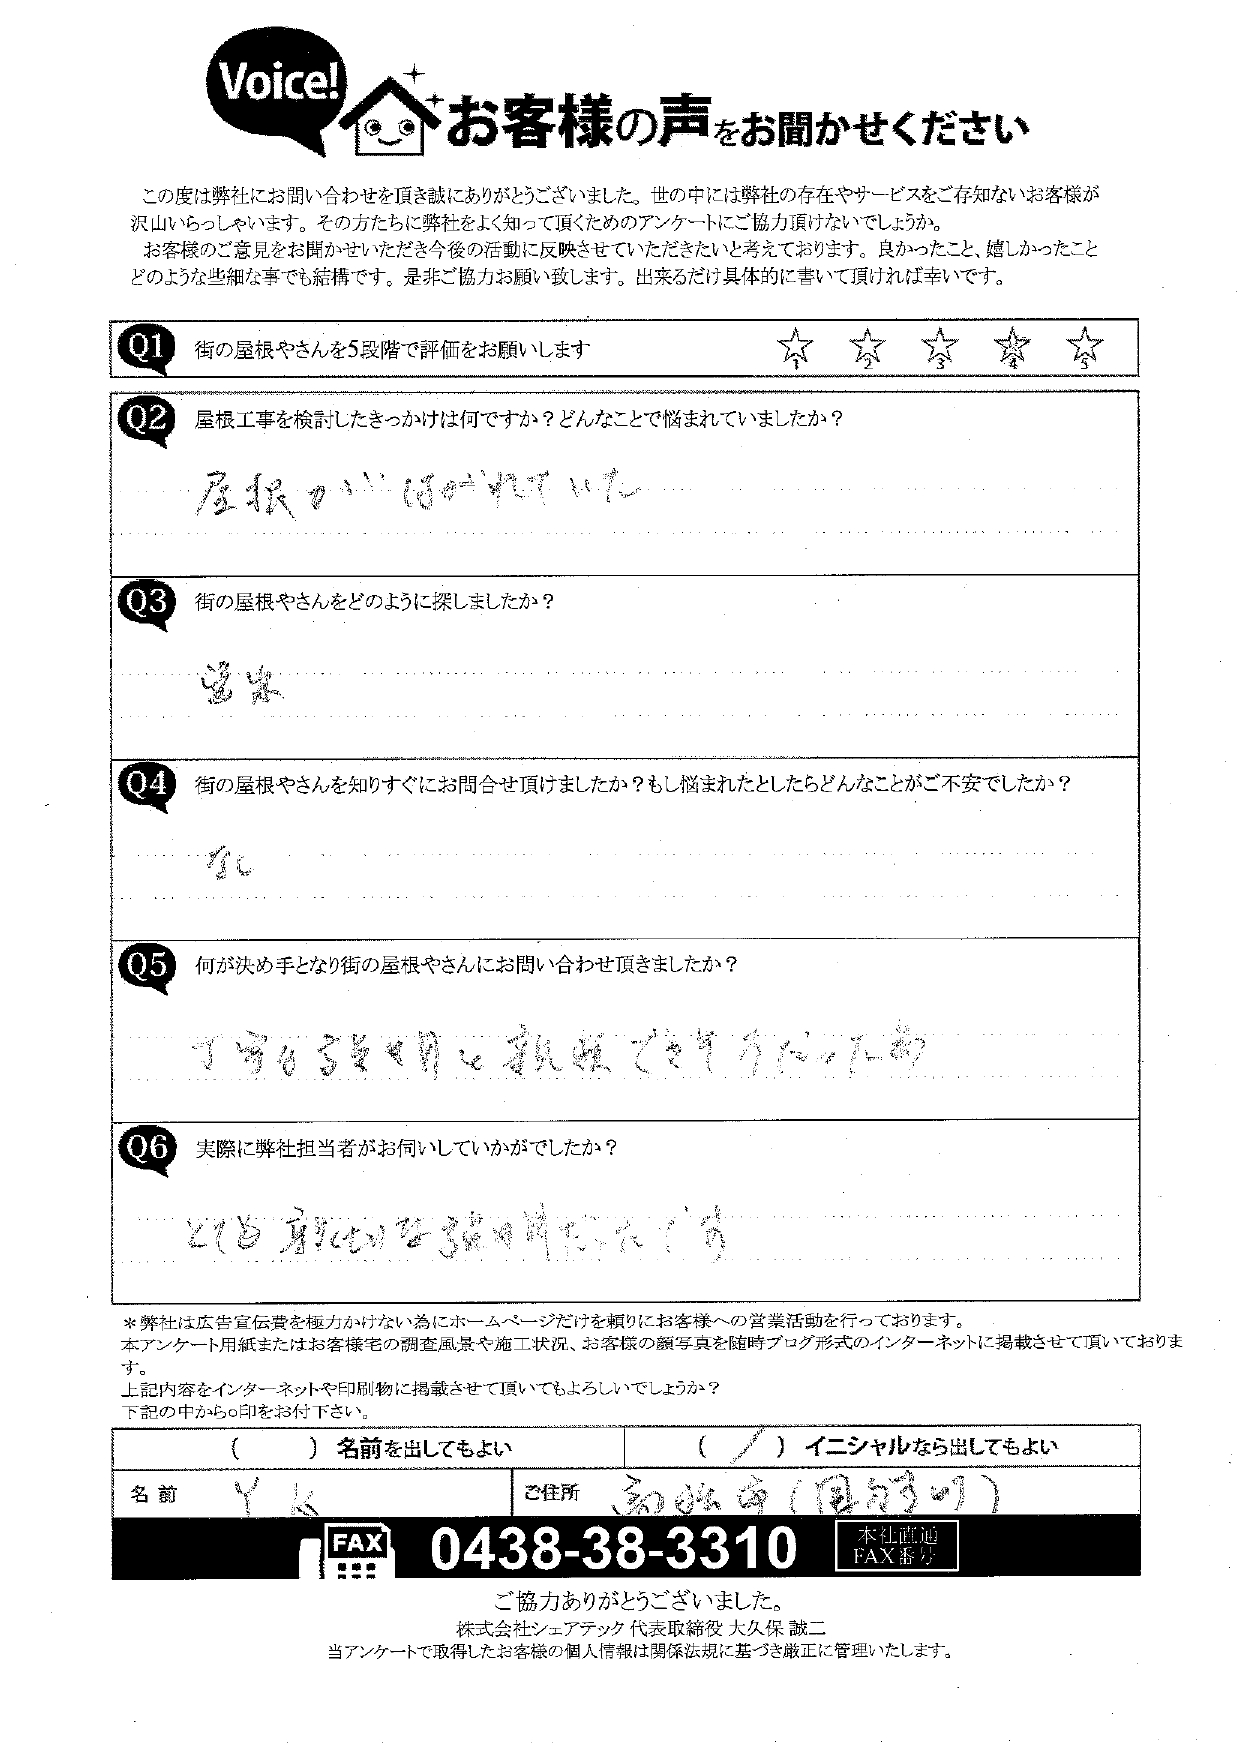 Voice!
お客様の声をお聞かせください
この度は弊社にお問い合わせを頂き誠にありがとうございました。世の中には弊社の存在やサービスをご存知ないお客様が
沢山いらっしゃいます。その方たちに弊社をよく知って頂くためのアンケートにご協力頂けないでしょうか。
お客様のご意見をお聞かせいただき今後の活動に反映させていただきたいと考えております。良かったこと、嬉しかったこと
どのような些細な事でも結構です。是非ご協力お願い致します。出来るだけ具体的に書いて頂ければ幸いです。
Q1 街の屋根やさんを5段階で評価をお願いします ☆1 ☆2 ☆3 ☆4 ☆5
Q2 屋根工事を検討したきっかけは何ですか？どんなことで悩まれていましたか？
屋根がはがれていた
Q3 街の屋根やさんをどのように探しましたか？
Q4 街の屋根やさんを知りすぐにお問合せ頂けましたか？もし悩まれたとしたらどんなことがご不安でしたか？
なし
Q5 何が決め手となり街の屋根やさんにお問い合わせ頂きましたか？
丁寧な説明と親
Q6 実際に弊社担当者がお伺いしていかがでしたか？
とても親切な説明だったです
＊弊社は広告宣伝費を極力かけない為にホームページだけを頼りにお客様への営業活動を行っております。
本アンケート用紙またはお客様宅の調査風景や施工状況、お客様の顔写真を随時ブログ形式のインターネットに掲載させて頂いておりま
す。
上記内容をインターネットや印刷物に掲載させて頂いてもよろしいでしょうか？
下記の中から○印をお付下さい。
（　　）名前を出してもよい （ / ）イニシャルなら出してもよい
名前 Y K ご住所 市(国分寺町)
FAX 0438-38-3310 本社直通
FAX番号
ご協力ありがとうございました。
株式会社シェアテック 代表取締役 大久保 誠二
当アンケートで取得したお客様の個人情報は関係法規に基づき厳正に管理いたします。